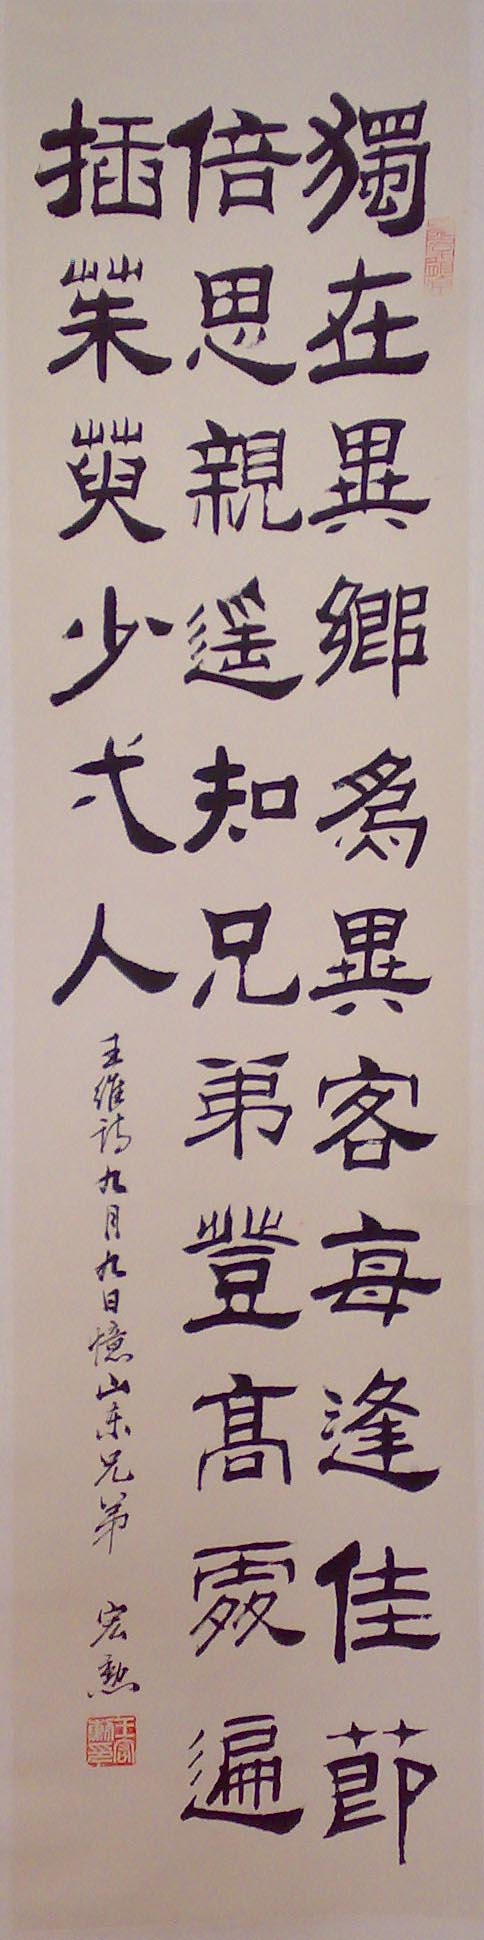 獨在異鄉為異客每逢佳節
倍思親遥知兄弟登高處遍
插茱萸少弌人
王維詩九月九日憶山东兄弟 宏勲